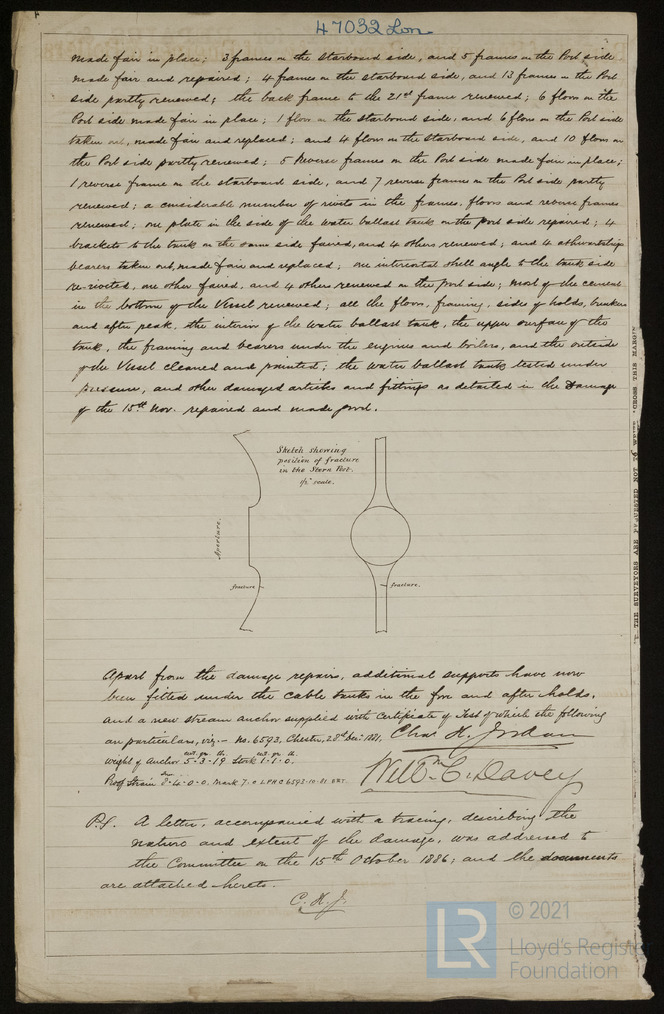 47032 Lon
made fair in place; 3 frames on the Starboard side, and 5 frames on the Port side
made fair and repaired; 4 frames on the starboard side, and 13 frames on the Port
side partly renewed; the back frame to the 21st frame renewed; 6 floors on the
Port side made fair in place; 1 floor on the starboard side, and 6 floors on the Port side
taken out, made fair and replaced; and 4 floors on the Starboard side, and 10 floors on
the Port side partly renewed; 5 Reverse frames on the Port side made fair in place;
1 reverse frame on the starboard side, and 7 reverse frames on the Port side partly
renewed; a considerable number of rivets in the frames, floors and reverse frames
renewed; one plate in the side of the water ballast tank on the port side repaired; 4
brackets to the tank on the same side faired, and 4 others renewed; and 4 athwartship
bearers taken out, made fair and replaced; one intercostal shell angle to the tank side
re-riveted, one other faired, and 4 others renewed on the Port side; most of the cement
in the bottom of the Vessel renewed; all the floors, framing, sides of holds, bunkers
and after peak, the interior of the water ballast tank, the upper surface of the
tank, the framing and bearers under the engines and boilers, and the outside
of the Vessel cleaned and painted; the water ballast tank tested under
pressure, and other damaged articles and fittings as detailed in the Damage
of the 15th Nov. repaired and made good.
Sketch showing
position of fracture
in the Stern Post.
1/2" scale.
Aperture.
fracture
fracture.
Apart from the damage repairs, additional supports have now
been fitted under the cable tanks in the fore and after holds,
and a new stream anchor supplied with Certificate of Test of which the following
are particulars, viz:- No. 6593, Chester, 28th Dec: 1881,
Chas H. Jordan
Weight of Anchor 5-3-19 Stock 1-1-0,
Proof Strain 8-4-0-0. Mark 7-0 LPHC 6593-10-81
Willm C. Davey
P.S. A letter, accompanied with a tracing, describing the
nature and extent of the damage, was addressed to
the Committee on the 15th October 1886; and the documents
are attached hereto.
C. H. J.
THE SURVEYORS ARE REQUESTED NOT TO WRITE ACROSS THIS MARGIN
LR
© 2021
Lloyd's Register
Foundation